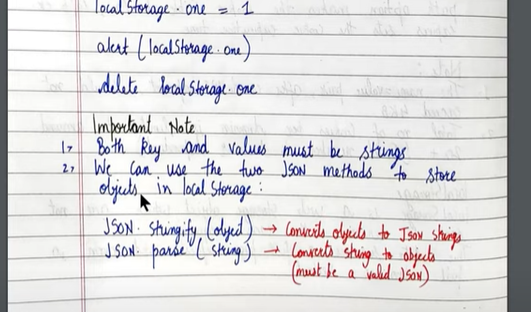 localStorage.one = 1
alert (localStorage.one)
delete localStorage.one
Important Note
1> Both key and values must be strings
2> We can use the two JSON methods to store
objects in local Storage :
JSON.stringify (object) → Converts objects to JSON strings
JSON.parse (string) → Converts string to objects
(must be a valid JSON)